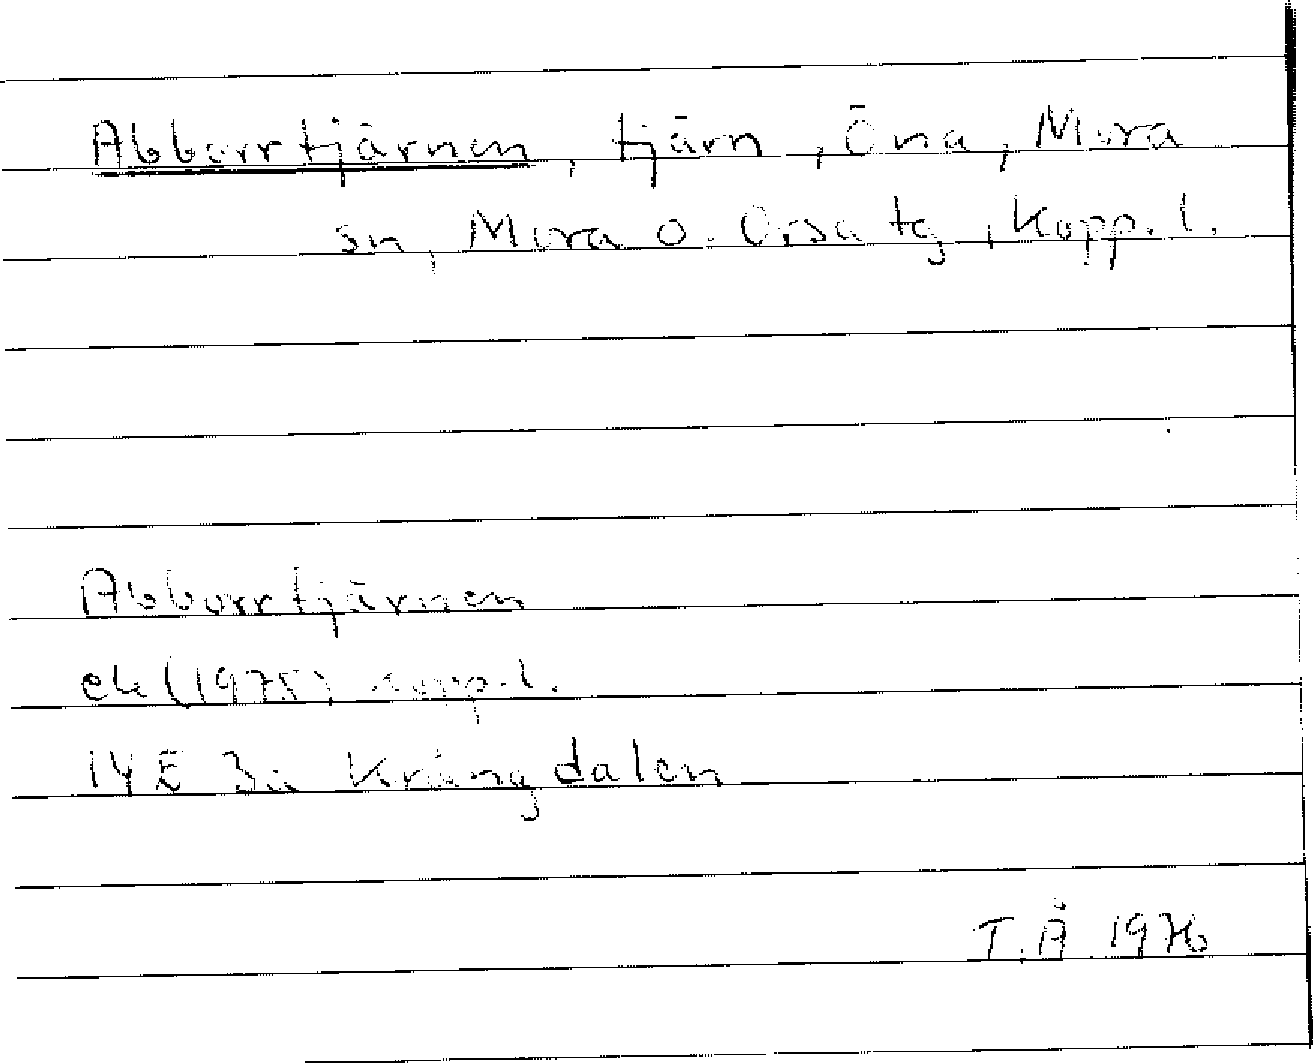 Abborrtjärnen, tjärn, Öna, Mora
sn, Mora o. Orsa tg, Kopp. l.
Abborrtjärnen
ek (1975) Kopp. l.
14E 3a Krångdalen
T.Å 1976